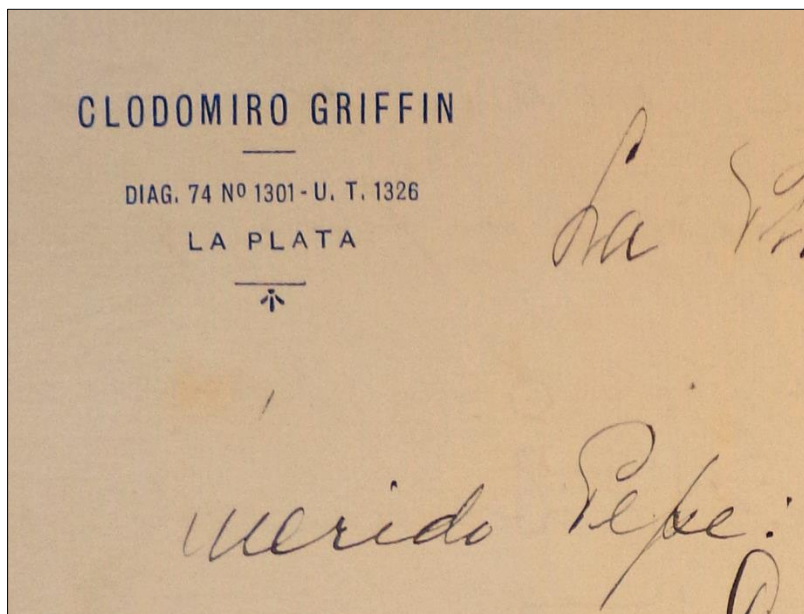 CLODOMIRO GRIFFIN
DIAG. 74 Nº 1301 - U. T. 1326
LA PLATA
La
Querido Pepe: